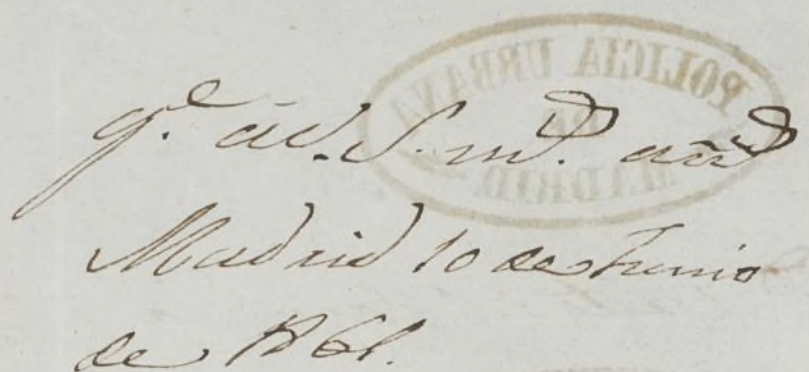 POLICIA URBANA
DE
MADRID
g.e á V. S. m.s añ.s
Madrid 10 de Junio
de 1861.